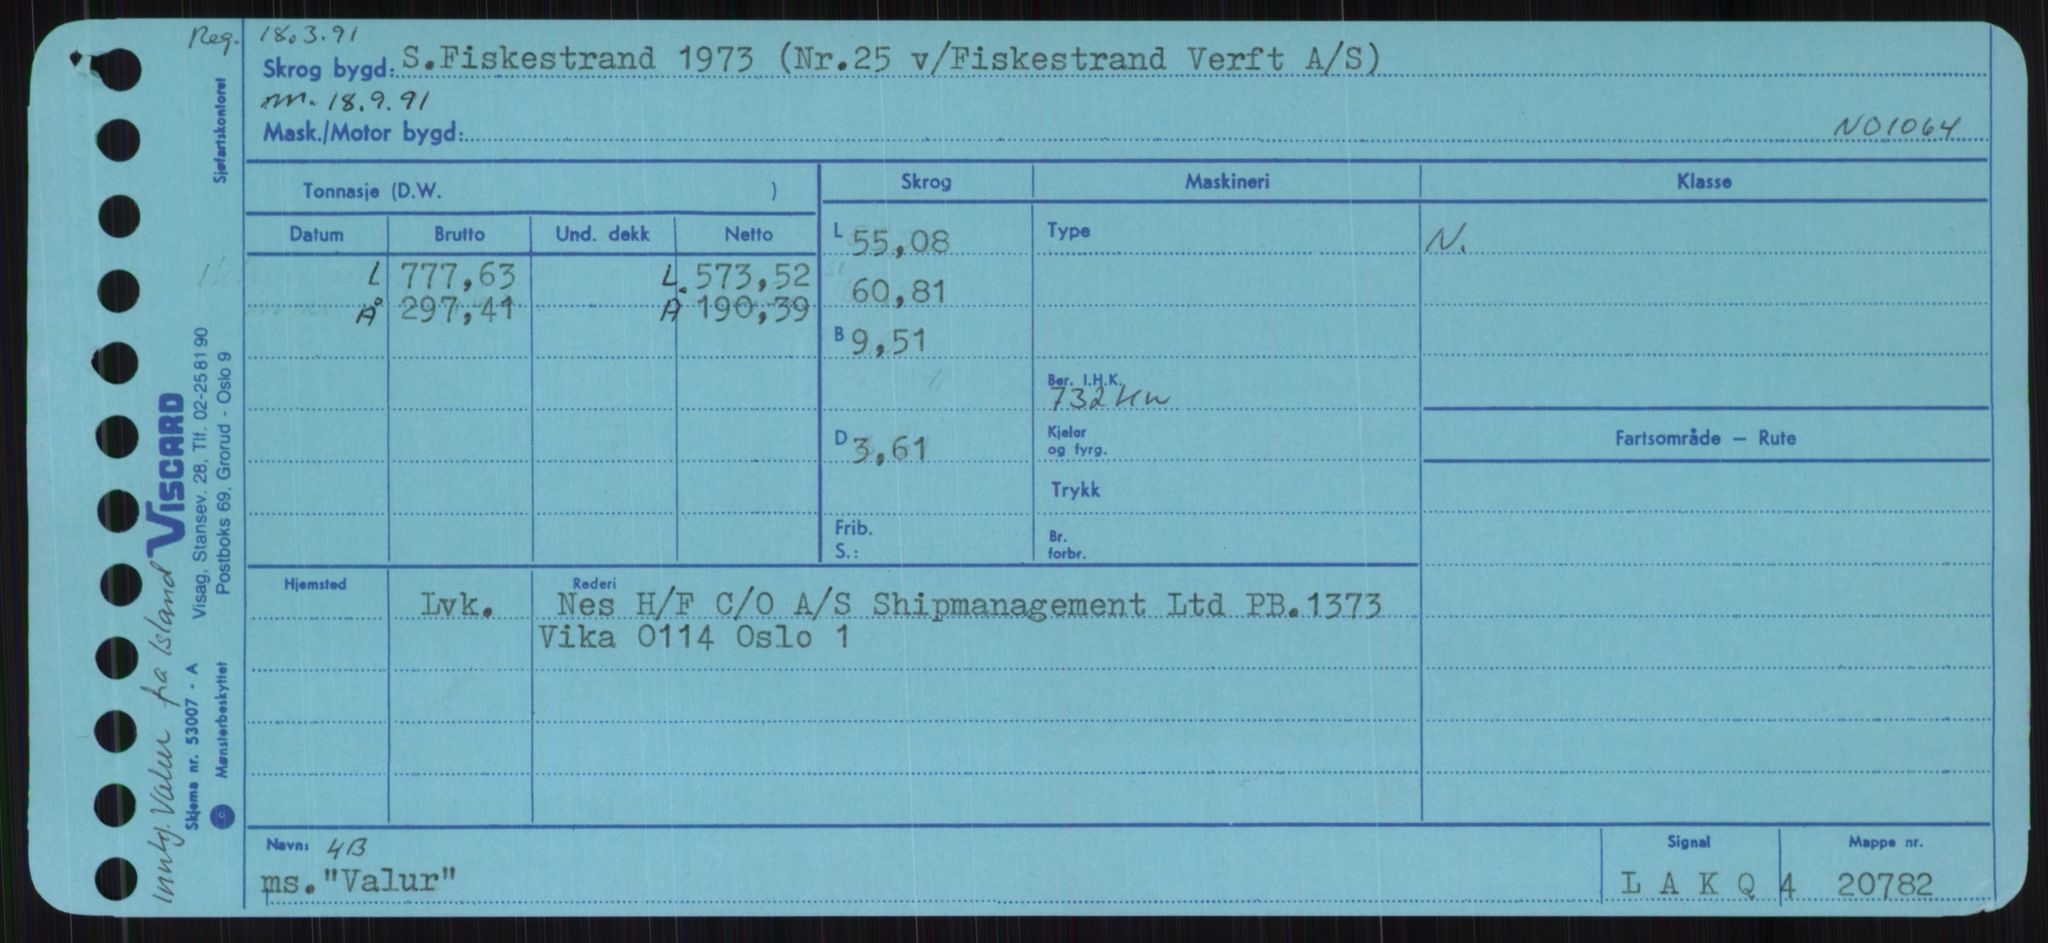 Reg. 18.3.91
Skrog bygd: S.Fiskestrand 1973 (Nr.25 v/Fiskestrand Verft A/S)
nm. 18.9.91
Mask./Motor bygd:
NO1064
Tonnasje (D.W. )
Skrog Maskineri Klasse
Datum Brutto Und. dekk Netto
L 55,08 Type N.
L 777,63 L. 573,52
60,81
Å 297,41 Å 190,39
B 9,51
Ber. I.H.K.
732 Kw
D 3,61 Kjeler
og fyrg.
Fartsområde — Rute
Trykk
Frib.
S.:
Br.
forbr.
Hjemsted Rederi
Lvk. Nes H/F C/O A/S Shipmanagement Ltd PB.1373
Vika 0114 Oslo 1
Navn: 4B
ms."Valur"
Signal Mappe nr.
L A K Q 4 20782
Sjøfartskontoret
VISCARD
Visag, Stansev. 28, Tlf. 02-25 81 90
Postboks 69, Grorud - Oslo 9
Skjema nr. 53007 - A
Mønsterbeskyttet
Valur fra Island